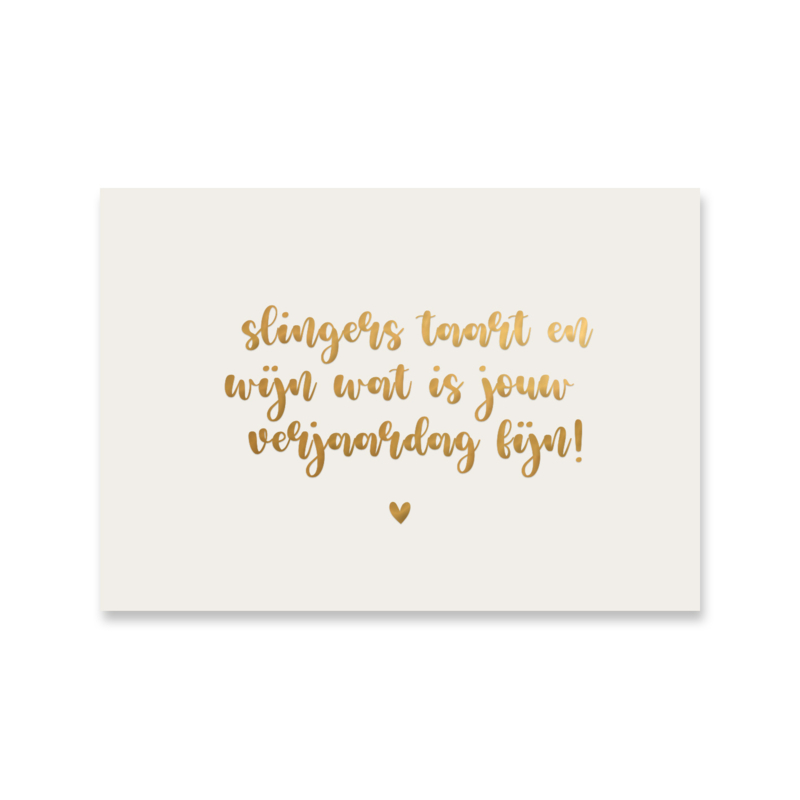 slingers taart en
wijn wat is jouw
verjaardag fijn!